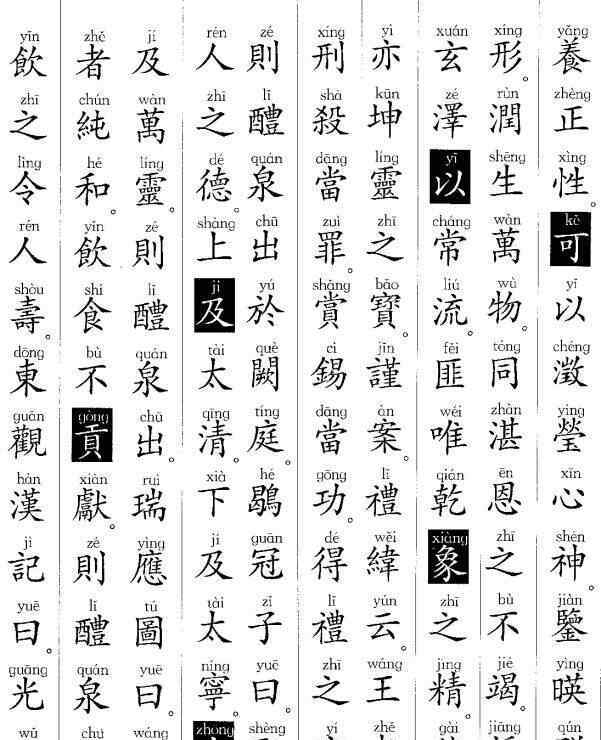 yǎng zhèng xìng kě yǐ chéng yíng xīn shén jiàn yìng qún
養正性。可以澂瑩心神。鑒暎
xíng rùn shēng wàn wù tóng zhàn ēn zhī bù jié jiāng
形。潤生萬物。同湛恩之不竭。
xuán zé yǐ cháng liú fěi wéi qián xiàng zhī jīng gài
玄澤以常流。匪唯乾象之精。
yì kūn líng zhī bǎo jǐn àn lǐ wěi yún wáng zhě
亦坤靈之寶。謹案禮緯云。王
xíng shā dāng zuì shǎng cì dāng gōng dé lǐ zhī yí
刑殺當罪。賞錫當功。得禮之
zé lǐ quán chū yú què tíng hé guān zǐ yuē shèng
則醴泉出於闕庭。鶡冠子曰。
rén zhī dé shàng jí tài qīng xià jí tài níng zhōng
人之德。上及太清。下及太寧。
jí wàn líng zé lǐ quán chū ruì yìng tú yuē wáng
及萬靈。則醴泉出。瑞應圖曰。
zhě chún hé yǐn shí bù gòng xiàn zé lǐ quán chū
者純和。飲食不貢獻。則醴泉
yǐn zhī lìng rén shòu dōng guān hàn jì yuē guāng wǔ
飲之令人壽。東觀漢記曰。光